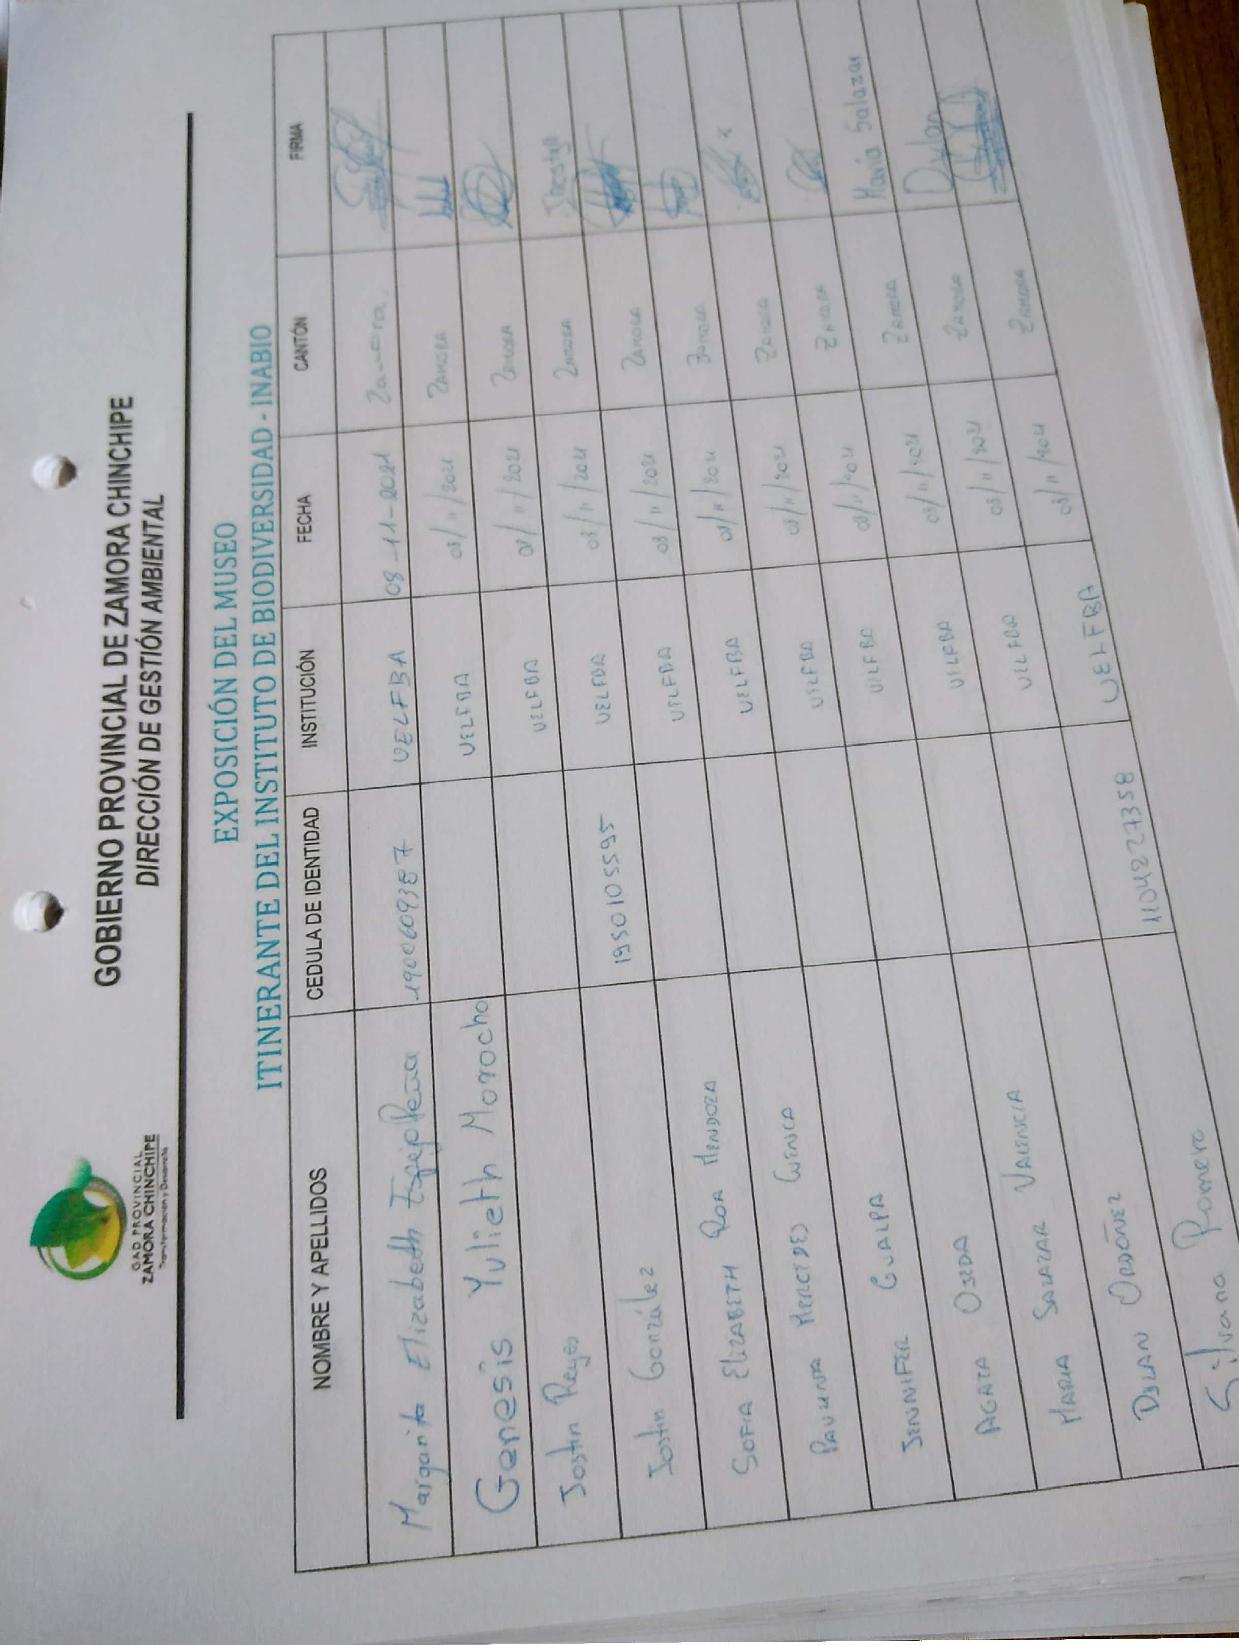 GAD PROVINCIAL
ZAMORA CHINCHIPE
Transformación y Desarrollo
GOBIERNO PROVINCIAL DE ZAMORA CHINCHIPE
DIRECCIÓN DE GESTIÓN AMBIENTAL
EXPOSICIÓN DEL MUSEO
ITINERANTE DEL INSTITUTO DE BIODIVERSIDAD - INABIO
NOMBRE Y APELLIDOS CEDULA DE IDENTIDAD INSTITUCIÓN FECHA CANTÓN FIRMA
Margarita Elizabeth Peña 1900609387 UELFBA 08-11-2021 Zamora.
Genesis Yulieth Morocho UELFBA 08/11/2021 ZAMORA
Jostin Reyes UELFBA 08/11/2021 ZAMORA
Jostin González 1950105595 UELFBA 08/11/2021 ZAMORA
SOFIA ELIZABETH ROA MENDOZA UELFBA 08/11/2021 ZAMORA
MERCEDES UELFBA 08/11/2021 ZAMORA
JENNIFER GUALPA UELFBA 08/11/2021 ZAMORA
AGATA UELFBA 08/11/2021 ZAMORA
MARIA SALAZAR VALENCIA UELFBA 08/11/2021 ZAMORA Maria Salazar
DYLAN ORDOÑEZ UELFBA 08/11/2021 ZAMORA Dylan
Silvana Romero 1104227358 UELFBA 08/11/2021 ZAMORA